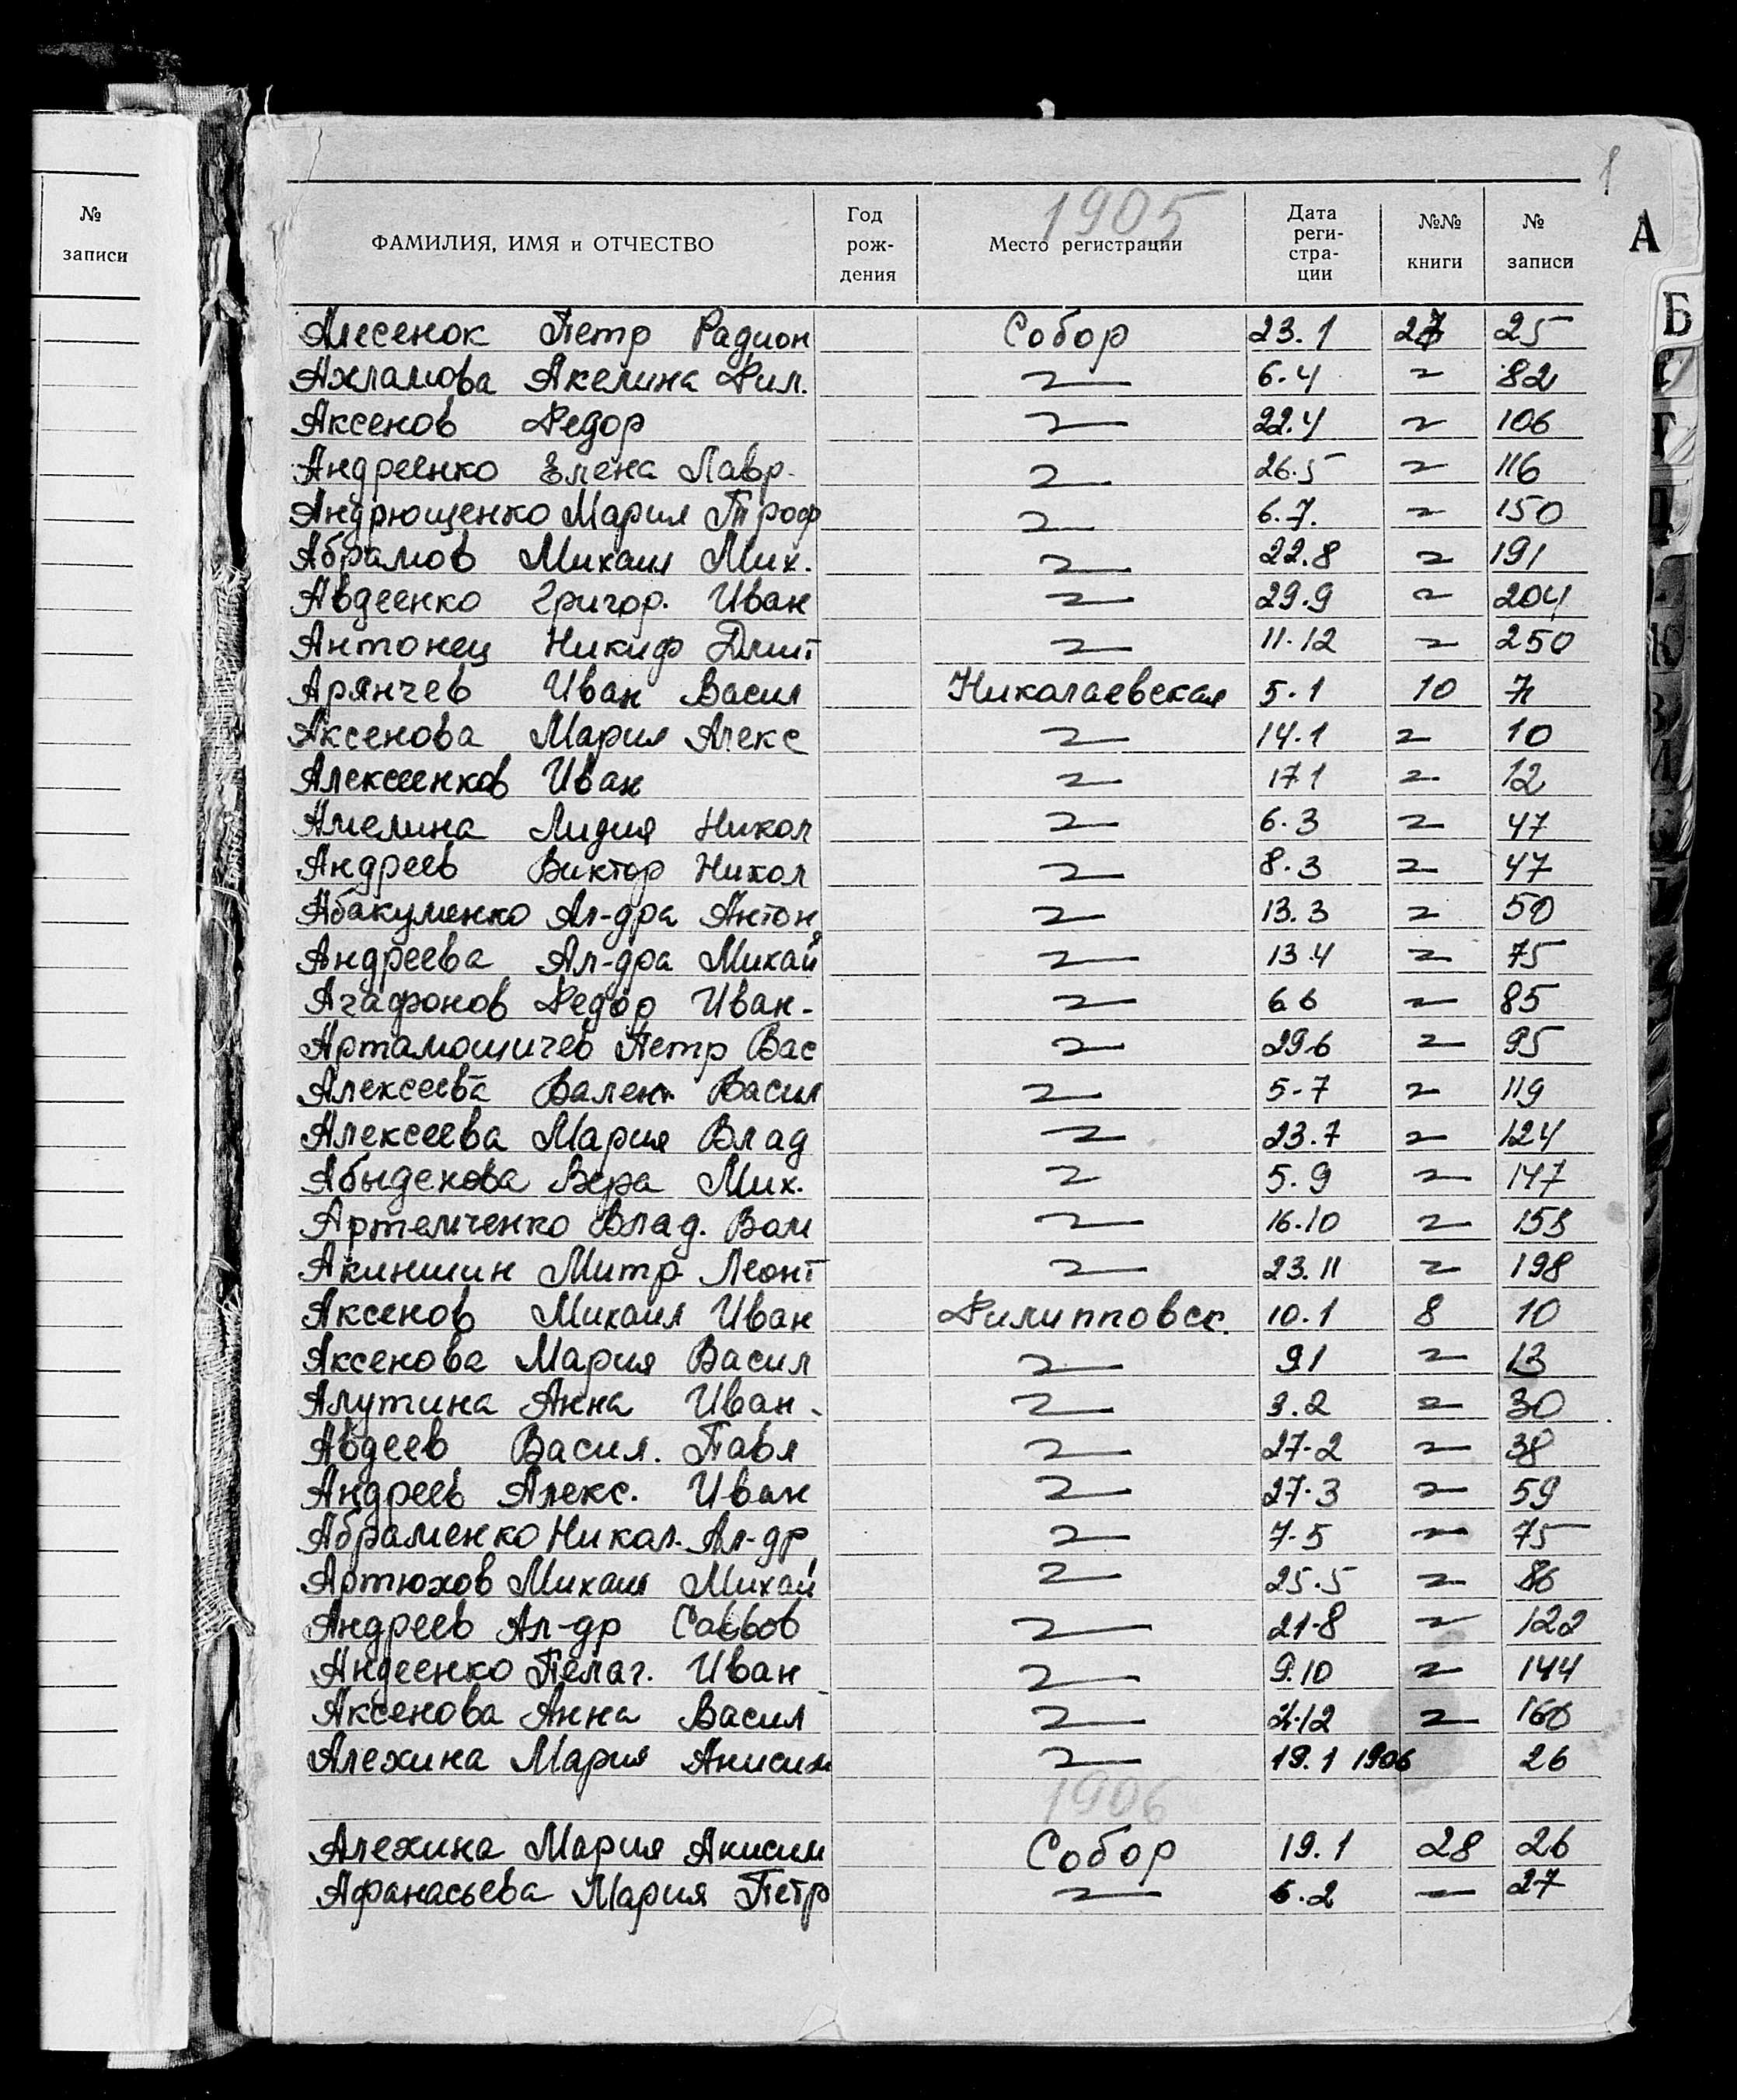 1
№ записи
ФАМИЛИЯ, ИМЯ и ОТЧЕСТВО Год рож- дения Место регистрации 1905 Дата реги- стра- ции №№ книги № записи
А
Б
Алесенок Петр Радион Собор 23.1 27 25
Ахламова Акелина Фил. 〃 6.4 〃 82
Аксенов Федор 〃 22.4 〃 106
Андреенко Елена Лавр. 〃 26.5 〃 116
Андрющенко Мария Троф 〃 6.7. 〃 150
Абрамов Михаил Мих. 〃 22.8 〃 191
Авдеенко Григор. Иван 〃 29.9 〃 204
Антонец Никиф Дмит 〃 11.12 〃 250
Арянчев Иван Васил Николаевская 5.1 10 7
Аксенова Мария Алекс 〃 14.1 〃 10
Алексеенков Иван 〃 17 1 〃 12
Амелина Лидия Никол 〃 6.3 〃 47
Андреев Виктор Никол 〃 8.3 〃 47
Абакуменко Ал-дра Антон 〃 13.3 〃 50
Андреева Ал-дра Михай 〃 13 4 〃 75
Агафонов Федор Иван. 〃 6 6 〃 85
Артамошичев Петр Вас 〃 29 6 〃 95
Алексеева Вален Васил 〃 5-7 〃 119
Алексеева Мария Влад 〃 23.7 〃 124
Абыденова Вера Мих. 〃 5.9 〃 147
Артемченко Влад. 〃 16.10 〃 153
Акиншин Митр Леонт 〃 23.11 〃 198
Аксенов Михаил Иван Филипповск. 10.1 8 10
Аксенова Мария Васил 〃 9 1 〃 13
Алутина Анна Иван. 〃 3.2 〃 30
Авдеев Васил. Павл 〃 27.2 〃 38
Андреев Алекс. Иван 〃 27.3 〃 59
Абраменко Никол. Ал-др 〃 7.5 〃 75
Артюхов Михаил Михай 〃 25.5 〃 86
Андреев Ал-др Саввов 〃 21-8 〃 122
Андеенко Пелаг. Иван 〃 9.10 〃 144
Аксенова Анна Васил 〃 2.12 〃 160
Алехина Мария Анисим 〃 19.1 1906 26
1906
Алехина Мария Анисим Собор 19.1 28 26
Афанасьева Мария Петр 〃 6.2 〃 27